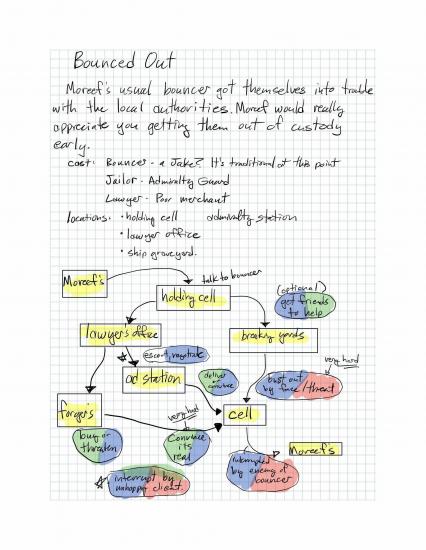 Bounced Out
Moreef's usual bouncer got themselves into trouble
with the local authorities. Moreef would really
appreciate you getting them out of custody
early.
cast: Bouncer - a Jake? It's traditional at this point
Jailor - Admiralty Guard
Lawyer - Poor merchant
locations: • holding cell admiralty station
• lawyer office
• ship graveyard.
Moreef's
talk to bouncer
holding cell
(optional)
get friends
to help
lawyer's office
breaking yards
escort, negotiate
very hard
ad station
deliver
convince
bust out
by force/threat
forger's
very hard
cell
buy or
threaten
Convince
its
real
Moreef's
interrupt by
unhappy client
interrupted
by enemy of
bouncer